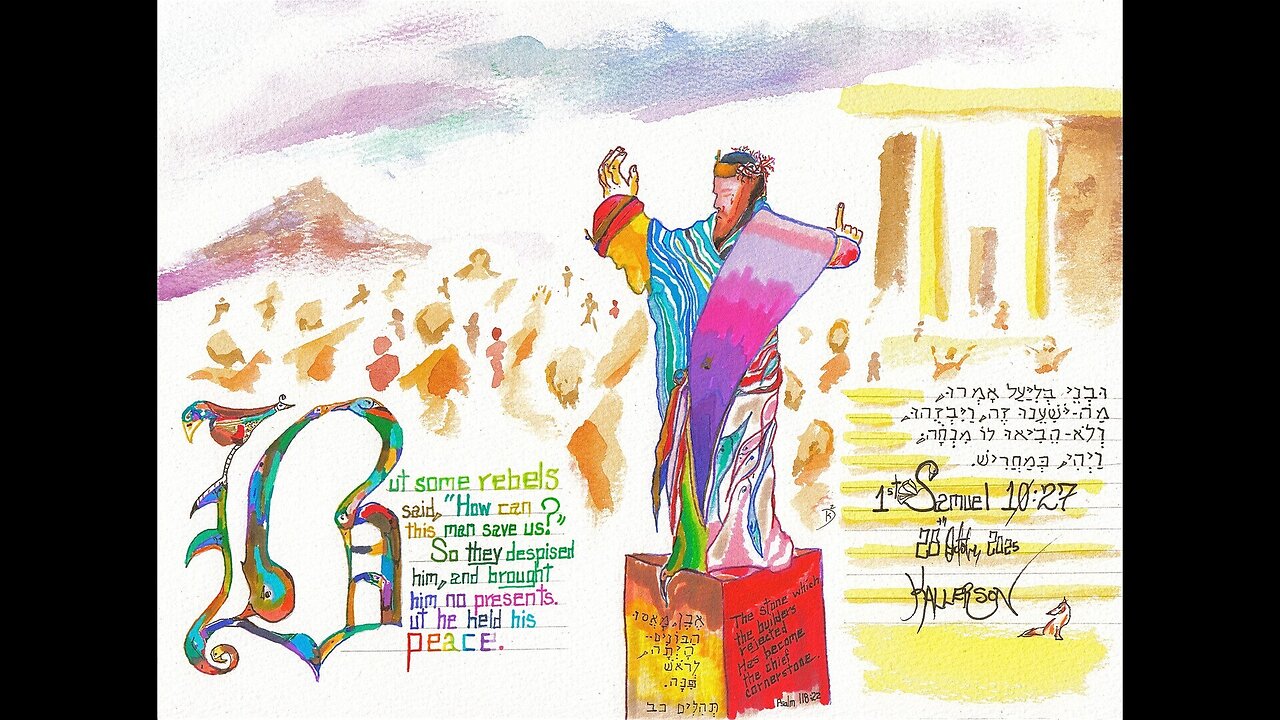 But some rebels
said, "How can
this man save us?"
So they despised
him, and brought
him no presents.
But he held his
peace.
וּבְנֵי בְלִיַּעַל אָמְרוּ,
מַה-יֹּשִׁעֵנוּ זֶה, וַיִּבְזֻהוּ,
וְלֹא-הֵבִיאוּ לוֹ מִנְחָה;
וַיְהִי, כְּמַחֲרִישׁ.
1st Samuel 10:27
28th October, 2025
KALLERSON
אֶבֶן, מָאֲסוּ
הַבּוֹנִים--
הָיְתָה,
לְרֹאשׁ
פִּנָּה.
תְהִלִּים כב
The stone which
the builders
rejected
Has become
the chief
cornerstone.
Psalm 118:22